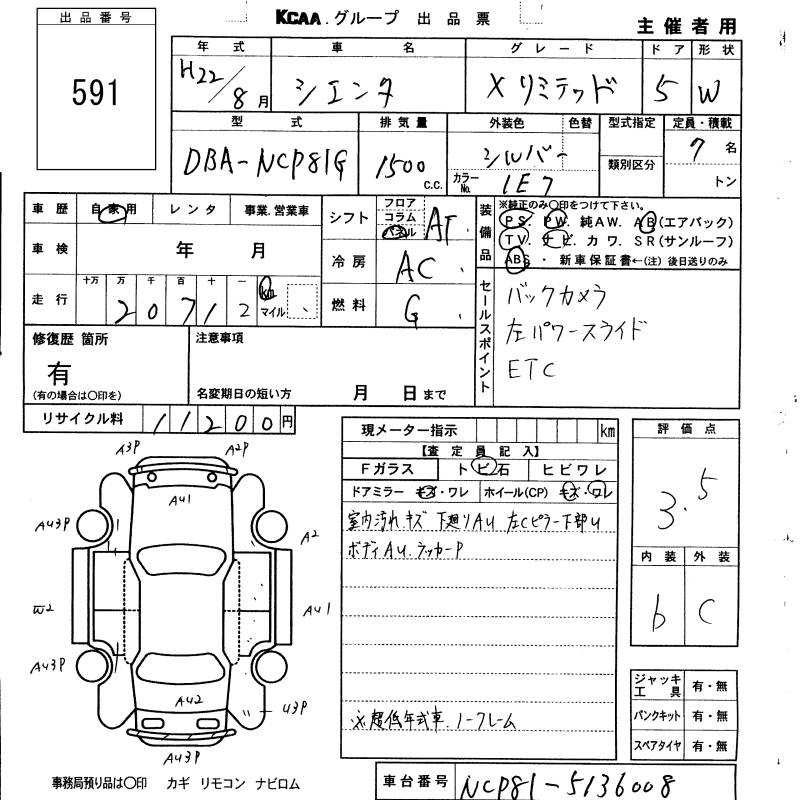 出品番号
591
KCAA.グループ 出品票
主催者用
年式 車名 グレード ドア 形状
H22/8月 シエンタ X リミテッド 5 W
型式 排気量 外装色 色替 型式指定 定員・積載
DBA-NCP81G 1500 c.c. シルバー 7名
カラーNo. 1E7 類別区分 トン
車歴 自家用 レンタ 事業.営業車
車検 年 月
走行 十万 万 千 百 十 一 km マイル
2 0 7 1 2
シフト フロア コラム パネル AT
冷房 AC
燃料 G
装備品 ※純正のみ〇印をつけて下さい。
PS. PW. 純AW. AB(エアバック)
TV. ナビ. カワ. SR(サンルーフ)
ABS ・ 新車保証書←(注)後日送りのみ
セールスポイント
バックカメラ
左パワースライド
ETC
修復歴 箇所
有
(有の場合は〇印を)
注意事項
名変期日の短い方 月 日まで
リサイクル料 11200円
現メーター指示 km
【査定員記入】
Fガラス トビ石 ヒビワレ
ドアミラー キズ・ワレ ホイール(CP) キズ・ワレ
室内汚れ キズ 下廻りAU 左Cピラー下部U
ボディAU.ラッカーP
※超低年式車 ノークレーム
評価点
3.5
内装 外装
b C
ジャッキ工具 有・無
パンクキット 有・無
スペアタイヤ 有・無
A3P A2P
AU1
AU3P A2
W2 AU1
AU3P
AU2 U3P
AU3P
事務局預り品は〇印 カギ リモコン ナビロム
車台番号 NCP81-5136008